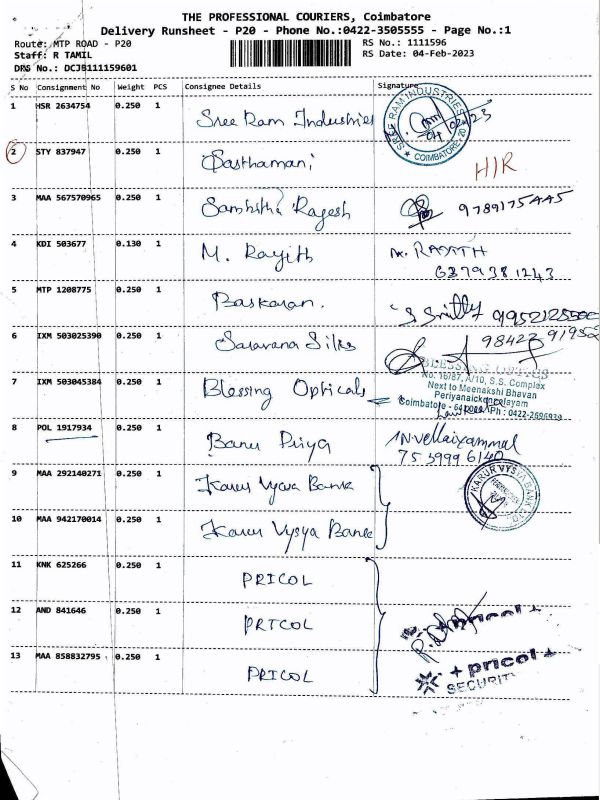 THE PROFESSIONAL COURIERS, Coimbatore
Delivery Runsheet - P20 - Phone No.:0422-3505555 - Page No.:1
Route: MTP ROAD - P20
RS No.: 1111596
Staff: R TAMIL
RS Date: 04-Feb-2023
DRS No.: DCJB111159601
S No Consignment No Weight PCS Consignee Details Signature
1 HSR 2634754 0.250 1 Sree Ram Industries
SREE RAM INDUSTRIES
COIMBATORE
2 STY 837947 0.250 1 Sasthamani
3 MAA 567570965 0.250 1 Samhitha Rajesh
4 KDI 503677 0.130 1 M. Rayith M. RAYITH
6379381243
5 MTP 1208775 0.250 1 Baskaran.
6 IXM 503025390 0.250 1 Saravana Silks
7 IXM 503045384 0.250 1 Blessing Opticals
No. 16/87, A/10, S.S. Complex
Next to Meenakshi Bhavan
Periyanaickenpalayam
8 POL 1917934 0.250 1 Banu Priya N. Vellaiyammal
75 3999 6140
9 MAA 292140271 0.250 1 Karur Vysya Bank
KARUR VYSYA BANK LTD.
10 MAA 942170014 0.250 1 Karur Vysya Bank
11 KNK 625266 0.250 1 PRICOL
12 AND 841646 0.250 1 PRICOL
pricol
13 MAA 858832795 0.250 1 PRICOL
pricol
SECURITY